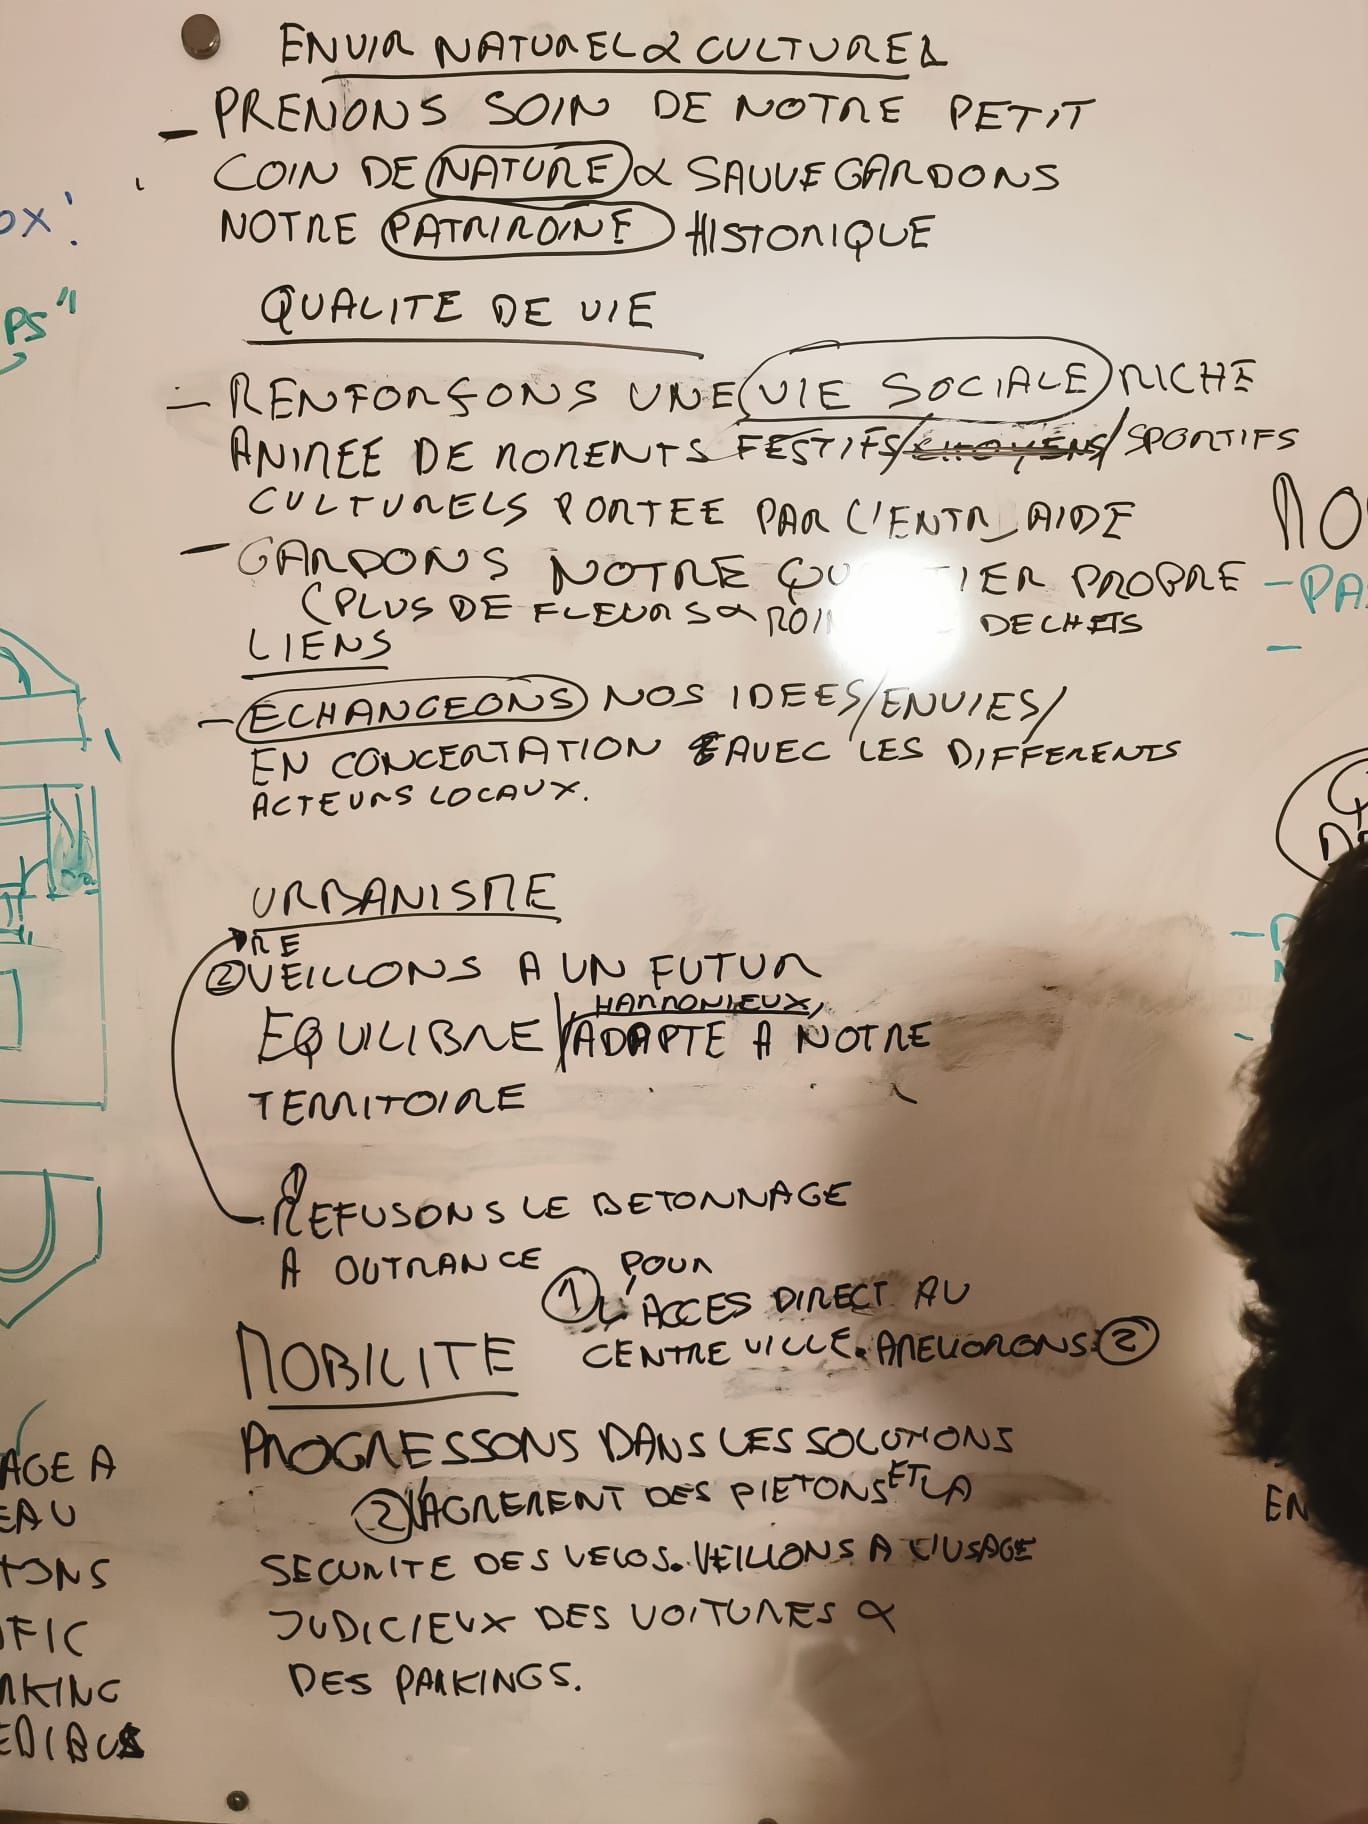 ENVIR NATUREL & CULTUREL
- PRENONS SOIN DE NOTRE PETIT
COIN DE NATURE & SAUVEGARDONS
NOTRE PATRIMOINE HISTORIQUE
QUALITE DE VIE
- RENFORÇONS UNE VIE SOCIALE RICHE
ANIMEE DE MOMENTS FESTIFS/CITOYENS/SPORTIFS
CULTURELS PORTEE PAR L'ENTR_AIDE
- GARDONS NOTRE QU TIER PROPRE
(PLUS DE FLEURS & MOI DECHETS
LIENS
- ECHANGEONS NOS IDEES/ENVIES/
EN CONCERTATION AVEC LES DIFFERENTS
ACTEURS LOCAUX.
URBANISME
RE
② VEILLONS A UN FUTUR
HARMONIEUX,
EQUILIBRE / ADAPTE A NOTRE
TERRITOIRE
①
REFUSONS LE BETONNAGE
A OUTRANCE
POUR
① L'ACCES DIRECT AU
CENTRE VILLE. AMELIORONS: ②
MOBILITE
PROGRESSONS DANS LES SOLUTIONS
② L'AGREMENT DES PIETONS ET LA
SECURITE DES VELOS. VEILLONS A L'USAGE
JUDICIEUX DES VOITURES &
DES PARKINGS.
OX!
PS"
AGE A
EAU
TONS
FIC
RKING
EDIBUS
MO
- PA
-
Q
EN